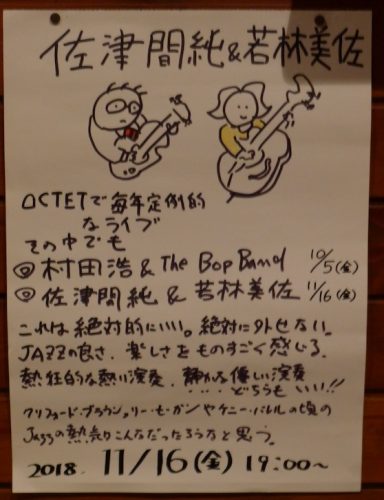 佐津間純&若林美佐
OCTETで毎年定例的
なライブ
その中でも
◎村田浩 & The Bop Band 10/5(金)
◎佐津間純 & 若林美佐 11/16(金)
これは絶対的にいい。絶対に外せない。
JAZZの良さ、楽しさをものすごく感じる。
熱狂的な熱い演奏、静かな優しい演奏
・・・どちらもいい!!
クリフォード・ブラウン、リー・モーガンやケニー・バレルの頃の
Jazzの熱気ってこんなだったろうなと思う。
2018. 11/16(金) 19:00〜